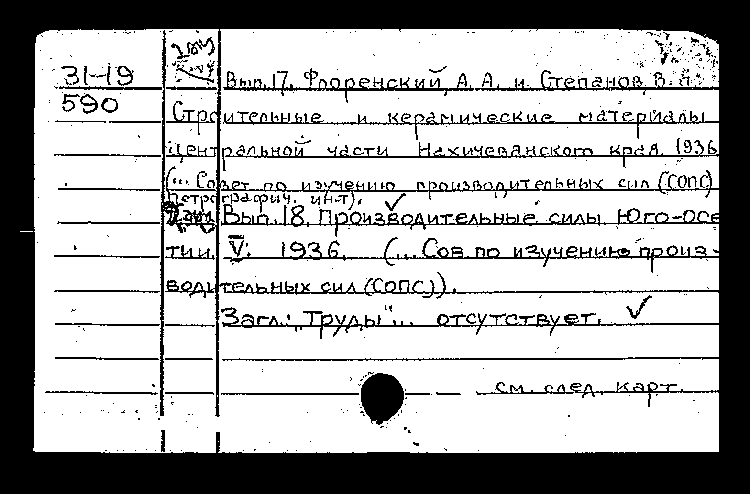 31-19
590
Вып. 17. Флоренский, А. А. и Степанов, В. Я.
Строительные и керамические материалы
центральной части Нахичеванского края. 1936
(... Совет по изучению производительных сил (СОПС)
Петрографич. ин-т).
Вып. 18. Производительные силы Юго-Осе
тии. V. 1936. (... Сов. по изучению произ-
водительных сил (СОПС)).
Загл.: "Труды"... отсутствует.
см. след. карт.